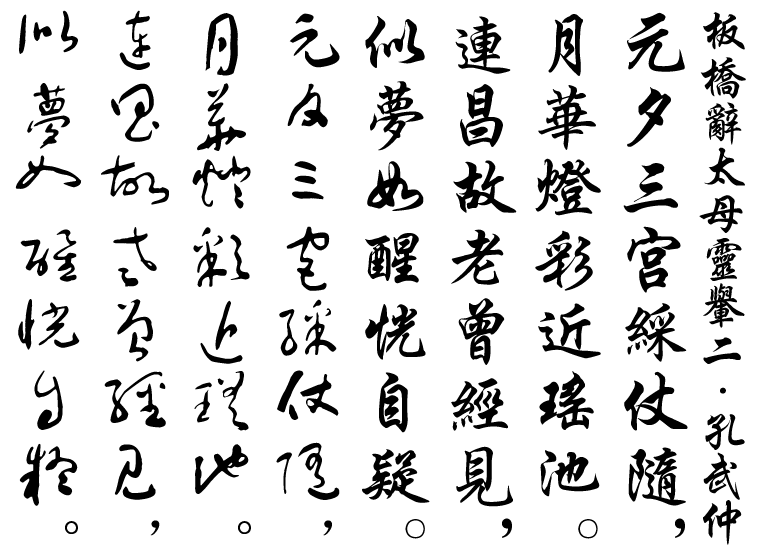 板橋辭太母靈轝二·孔武仲
元夕三宮綵仗隨，
月華燈彩近瑤池。
連昌故老曾經見，
似夢如醒恍自疑。
元夕三宮綵仗隨，
月華燈彩近瑤池。
連昌故老曾經見，
似夢如醒恍自疑。